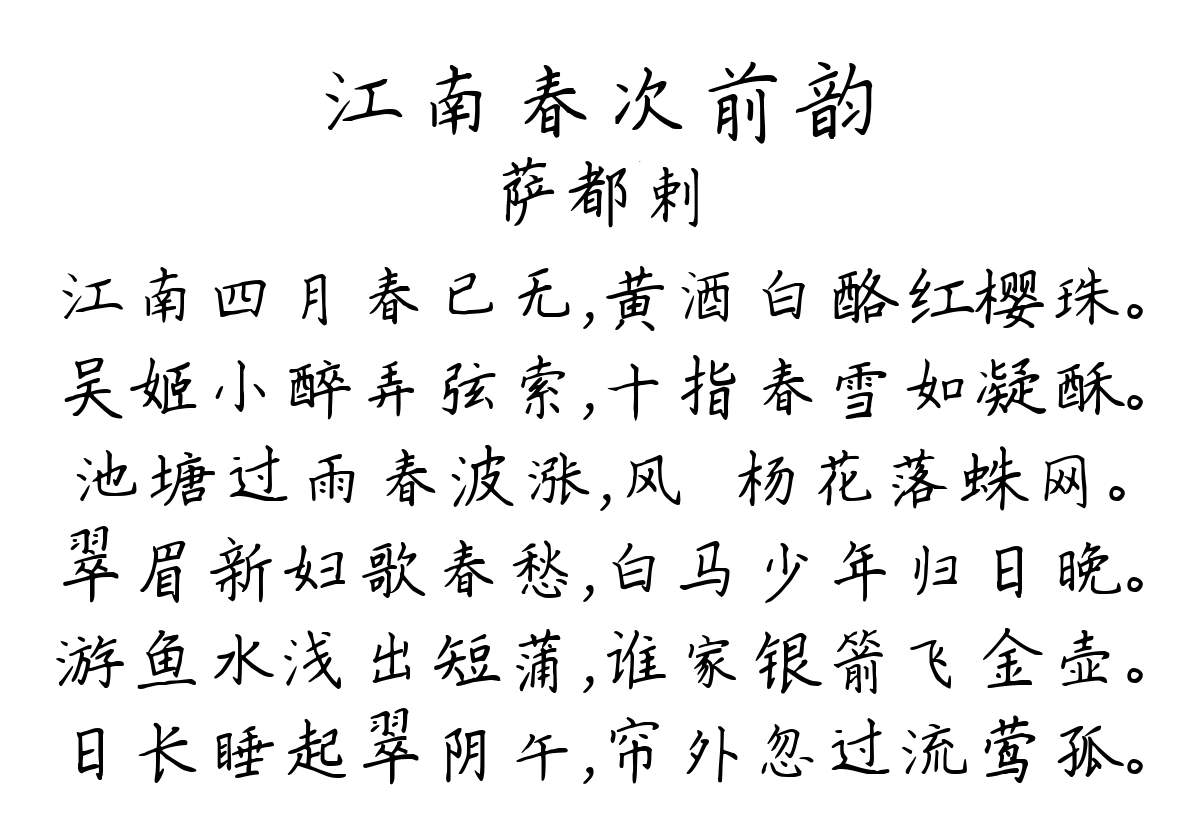 江南春次前韵
萨都剌
江南四月春已无,黄酒白酪红樱珠。
吴姬小醉弄弦索,十指春雪如凝酥。
池塘过雨春波涨,风 杨花落蛛网。
翠眉新妇歌春愁,白马少年归日晚。
游鱼水浅出短蒲,谁家银箭飞金壶。
日长睡起翠阴午,帘外忽过流莺孤。